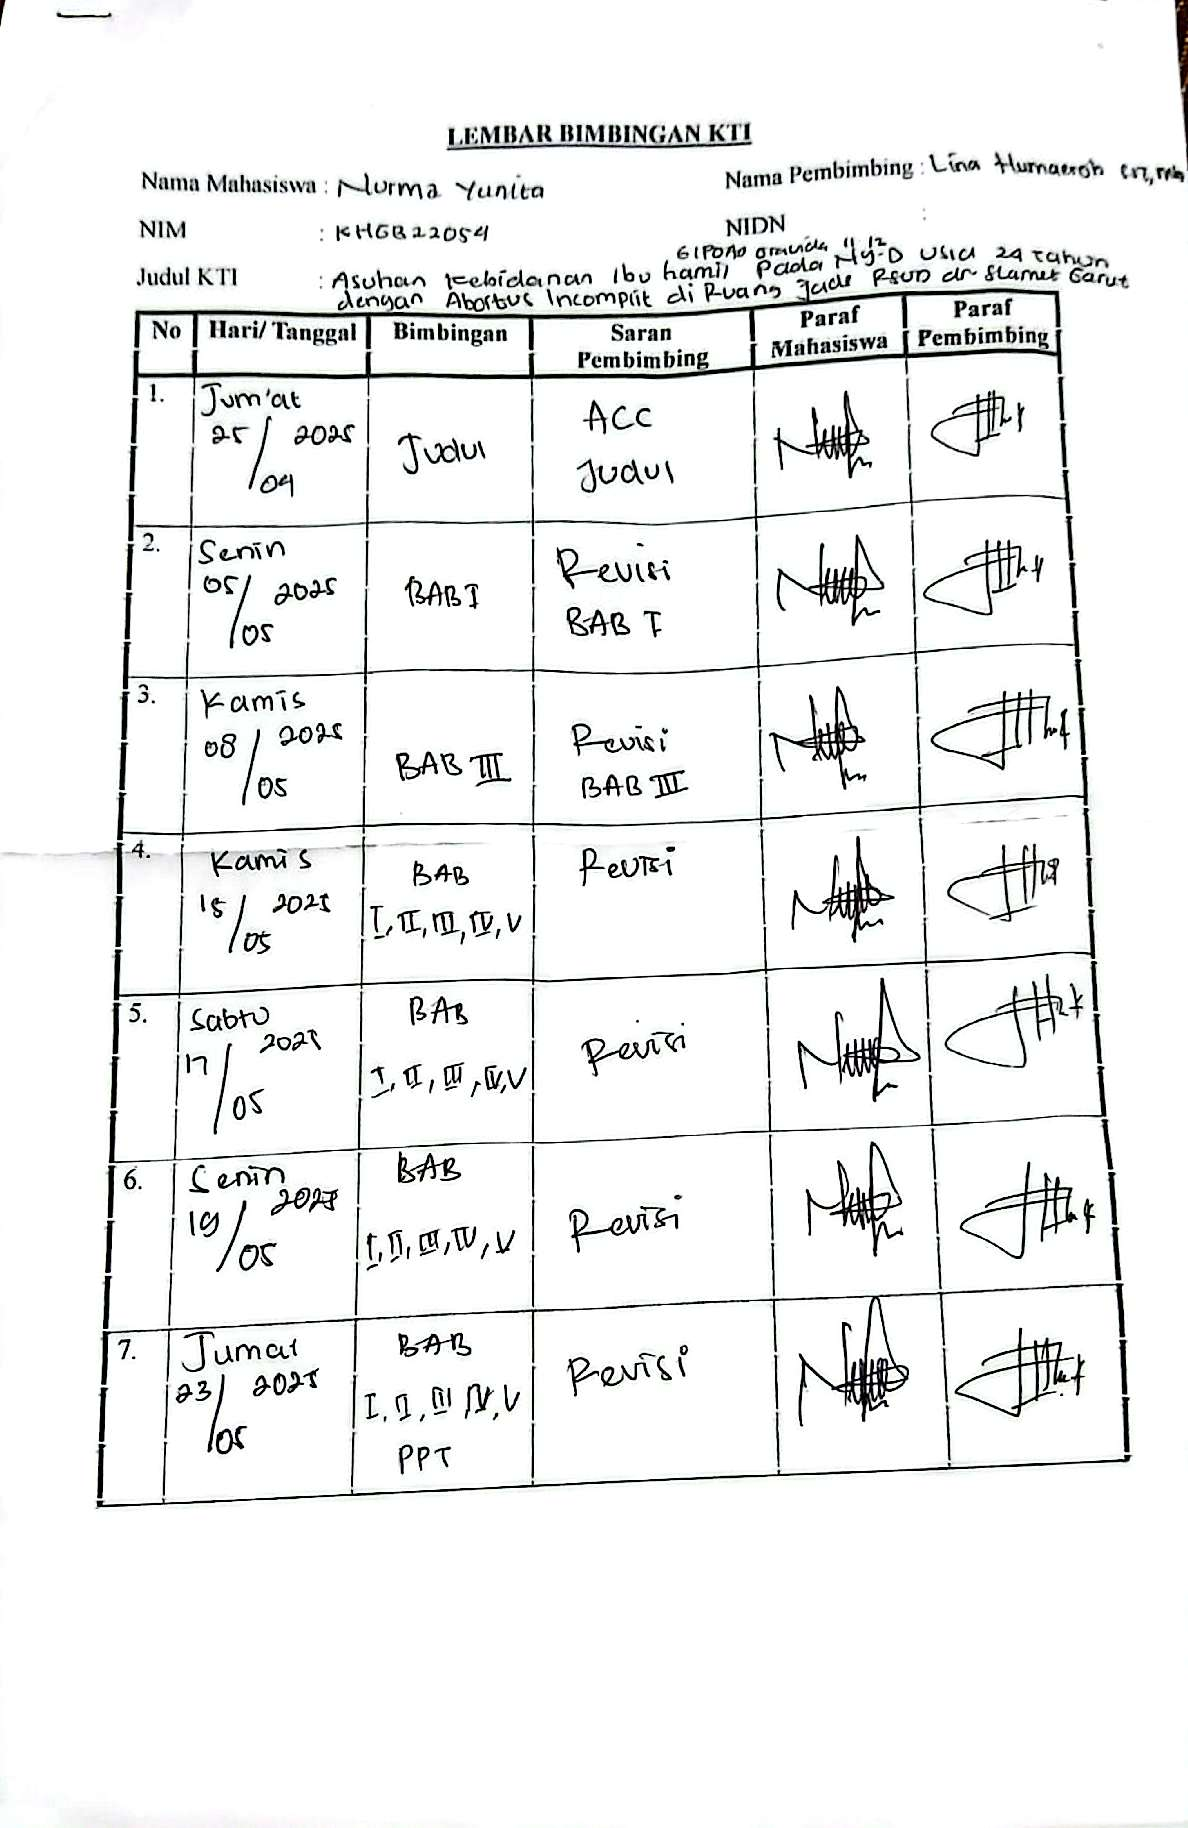 LEMBAR BIMBINGAN KTI
Nama Mahasiswa : Nurma Yunita
Nama Pembimbing : Lina Humaeroh
NIM : KHGB22054
NIDN :
G1P0A0 gravida 11-12
Judul KTI : Asuhan Kebidanan Ibu hamil Pada Ny-D Usia 24 Tahun
dengan Abortus Incomplit di Ruang Jade RSUD dr Slamet Garut
No Hari/ Tanggal Bimbingan Saran Pembimbing Paraf Mahasiswa Paraf Pembimbing
1. Jum'at 25/04 2025 Judul ACC Judul
2. Senin 05/05 2025 BAB I Revisi BAB I
3. Kamis 08/05 2025 BAB III Revisi BAB III
4. Kamis 15/05 2025 BAB I, II, III, IV, V Revisi
5. Sabtu 17/05 2025 BAB I, II, III, IV, V Revisi
6. Senin 19/05 2025 BAB I, II, III, IV, V Revisi
7. Jumat 23/05 2025 BAB I, II, III, IV, V PPT Revisi